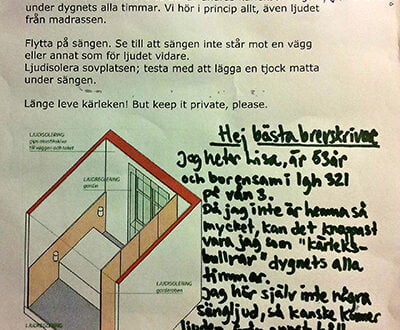 under dygnets alla timmar. Vi hör i princip allt, även ljudet
från madrassen.
Flytta på sängen. Se till att sängen inte står mot en vägg
eller annat som för ljudet vidare.
Ljudisolera sovplatsen; testa med att lägga en tjock matta
under sängen.
Länge leve kärleken! But keep it private, please.
LJUDISOLERING
till väggen och taket
LJUDISOLERING
LJUDISOLERING
garderoben
LJUDISOLERING
Hej bästa brevskrivare
Jag heter Lisa, är 63 år
och bor ensam i lgh 321
på vån 3.
Då jag inte är hemma så
mycket, kan det knappast
vara jag som "kärleks-
bullrar" dygnets alla
timmar.
Jag hör själv inte några
sängljud, så kanske